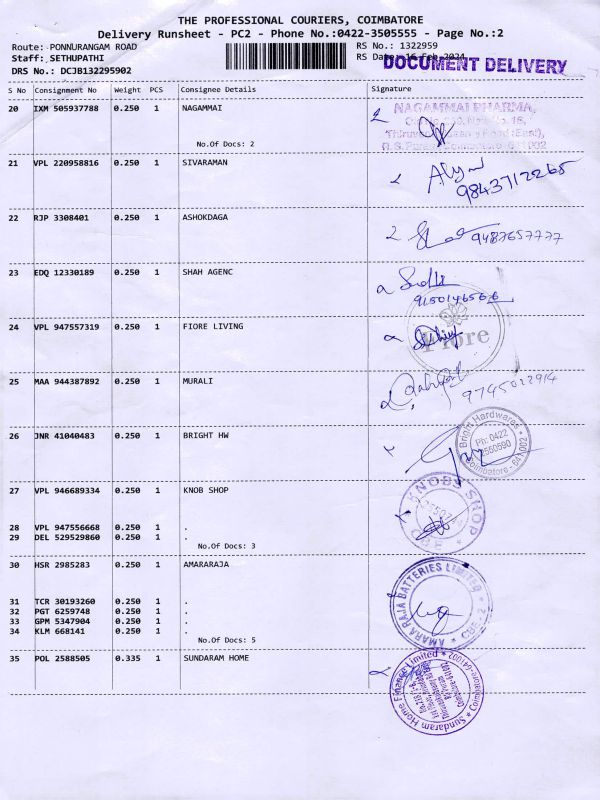 THE PROFESSIONAL COURIERS, COIMBATORE
Delivery Runsheet - PC2 - Phone No.:0422-3505555 - Page No.:2
Route: PONNURANGAM ROAD
Staff: SETHUPATHI
DRS No.: DCJB132295902
RS No.: 1322959
RS Date: 16 Feb 2024
DOCUMENT DELIVERY
S No Consignment No Weight PCS Consignee Details Signature
20 IXM 505937788 0.250 1 NAGAMMAI
No.Of Docs: 2
NAGAMMAI PHARMA,
21 VPL 220958816 0.250 1 SIVARAMAN
9843712265
22 RJP 3308401 0.250 1 ASHOKDAGA
9487657777
23 EDQ 12330189 0.250 1 SHAH AGENC
24 VPL 947557319 0.250 1 FIORE LIVING
Fiore
25 MAA 944387892 0.250 1 MURALI
9745022914
26 JNR 41040483 0.250 1 BRIGHT HW
Bright Hardwares
Ph: 0422
Coimbatore - 641 002
27 VPL 946689334 0.250 1 KNOB SHOP
KNOBS SHOP
CBE
28 VPL 947556668 0.250 1 .
29 DEL 529529860 0.250 1 .
No.Of Docs: 3
30 HSR 2985283 0.250 1 AMARARAJA
AMARA RAJA BATTERIES LIMITED
CBE-2
31 TCR 30193260 0.250 1 .
32 PGT 6259748 0.250 1 .
33 GPM 5347904 0.250 1 .
34 KLM 668141 0.250 1 .
No.Of Docs: 5
35 POL 2588505 0.335 1 SUNDARAM HOME
Sundaram Home Finance Limited
Coimbatore-641002